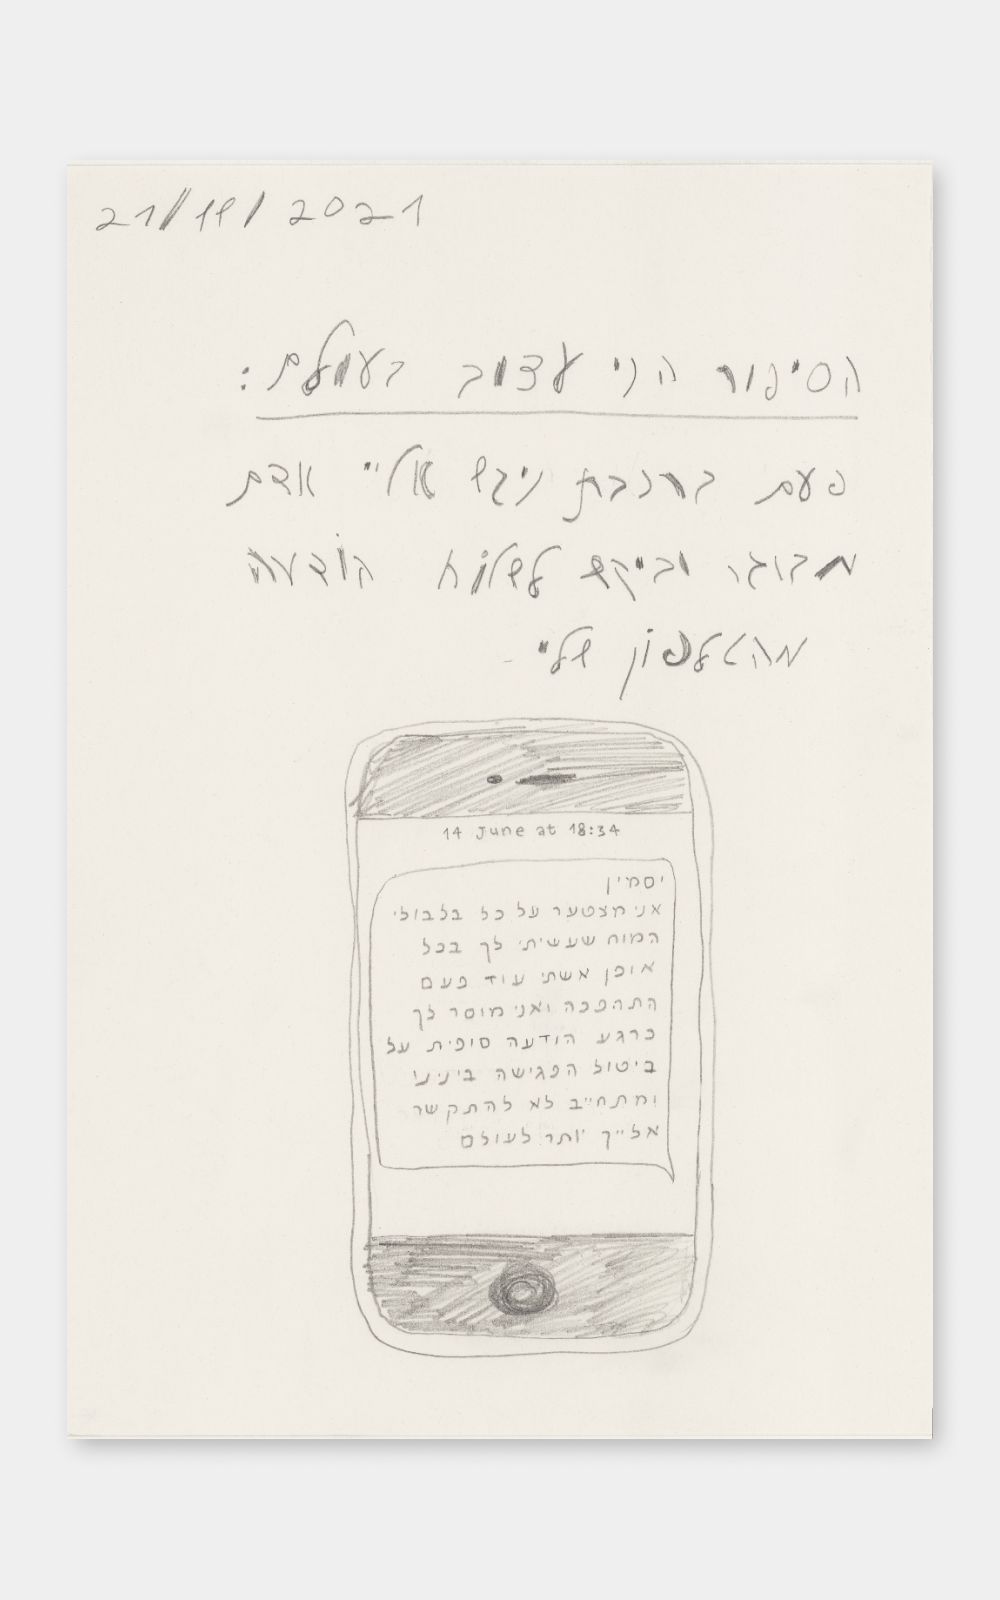 21/11/2021
הסיפור הכי עצוב בעולם:
פעם ברכבת ניגש אליי אדם
מבוגר וביקש לשלוח הודעה
מהטלפון שלי
14 June at 18:34
יסמין
אני מצטער על כל בלבולי
המוח שעשיתי לך בכל
אופן אשתי עוד פעם
התהפכה ואני מוסר לך
כרגע הודעה סופית על
ביטול הפגישה בינינו
ומתחייב לא להתקשר
אלייך יותר לעולם